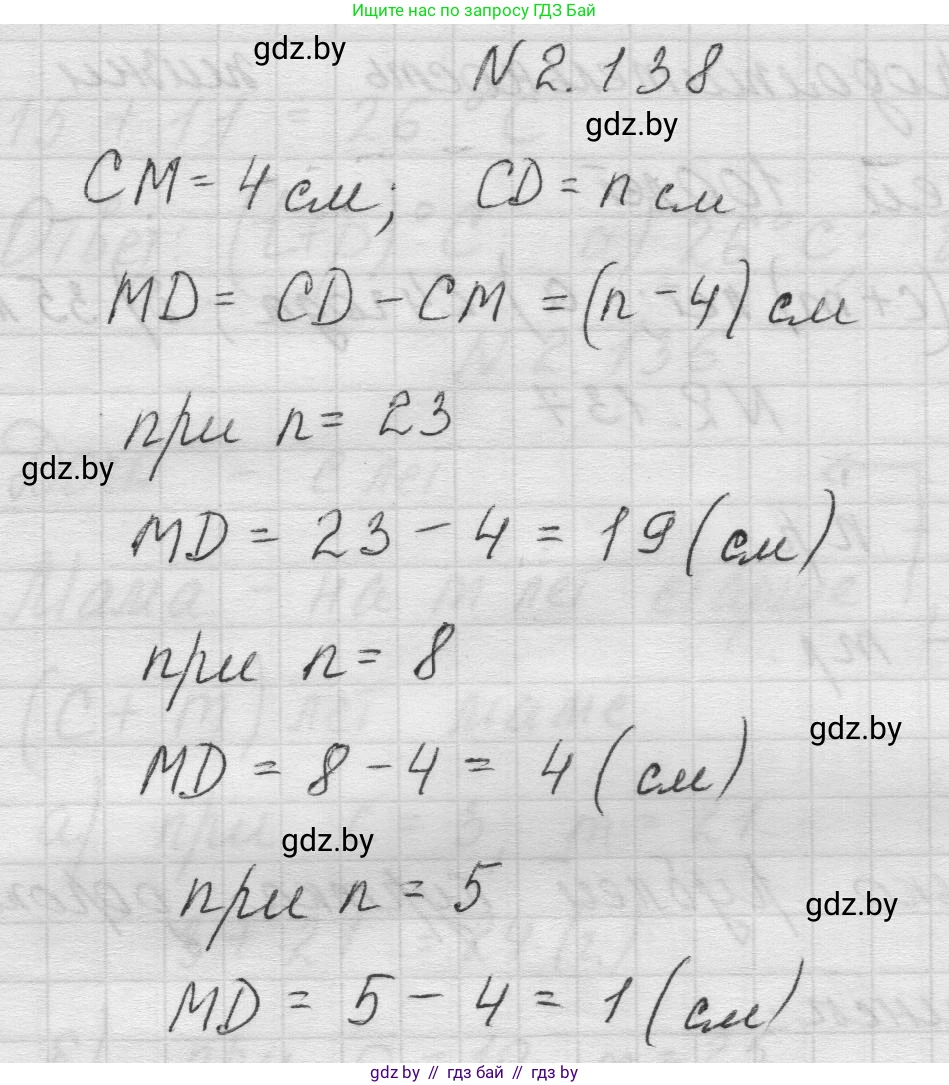 Ищите нас по запросу ГДЗ Бай
gdz.by
N 2.138
gdz.by
CM = 4 см; CD = n см
MD = CD - CM = (n - 4) см
при n = 23
gdz.by
MD = 23 - 4 = 19 (см)
при n = 8
gdz.by
MD = 8 - 4 = 4 (см)
gdz.by
при n = 5
gdz.by
MD = 5 - 4 = 1 (см)
gdz.by // гдз бай // gdz.by